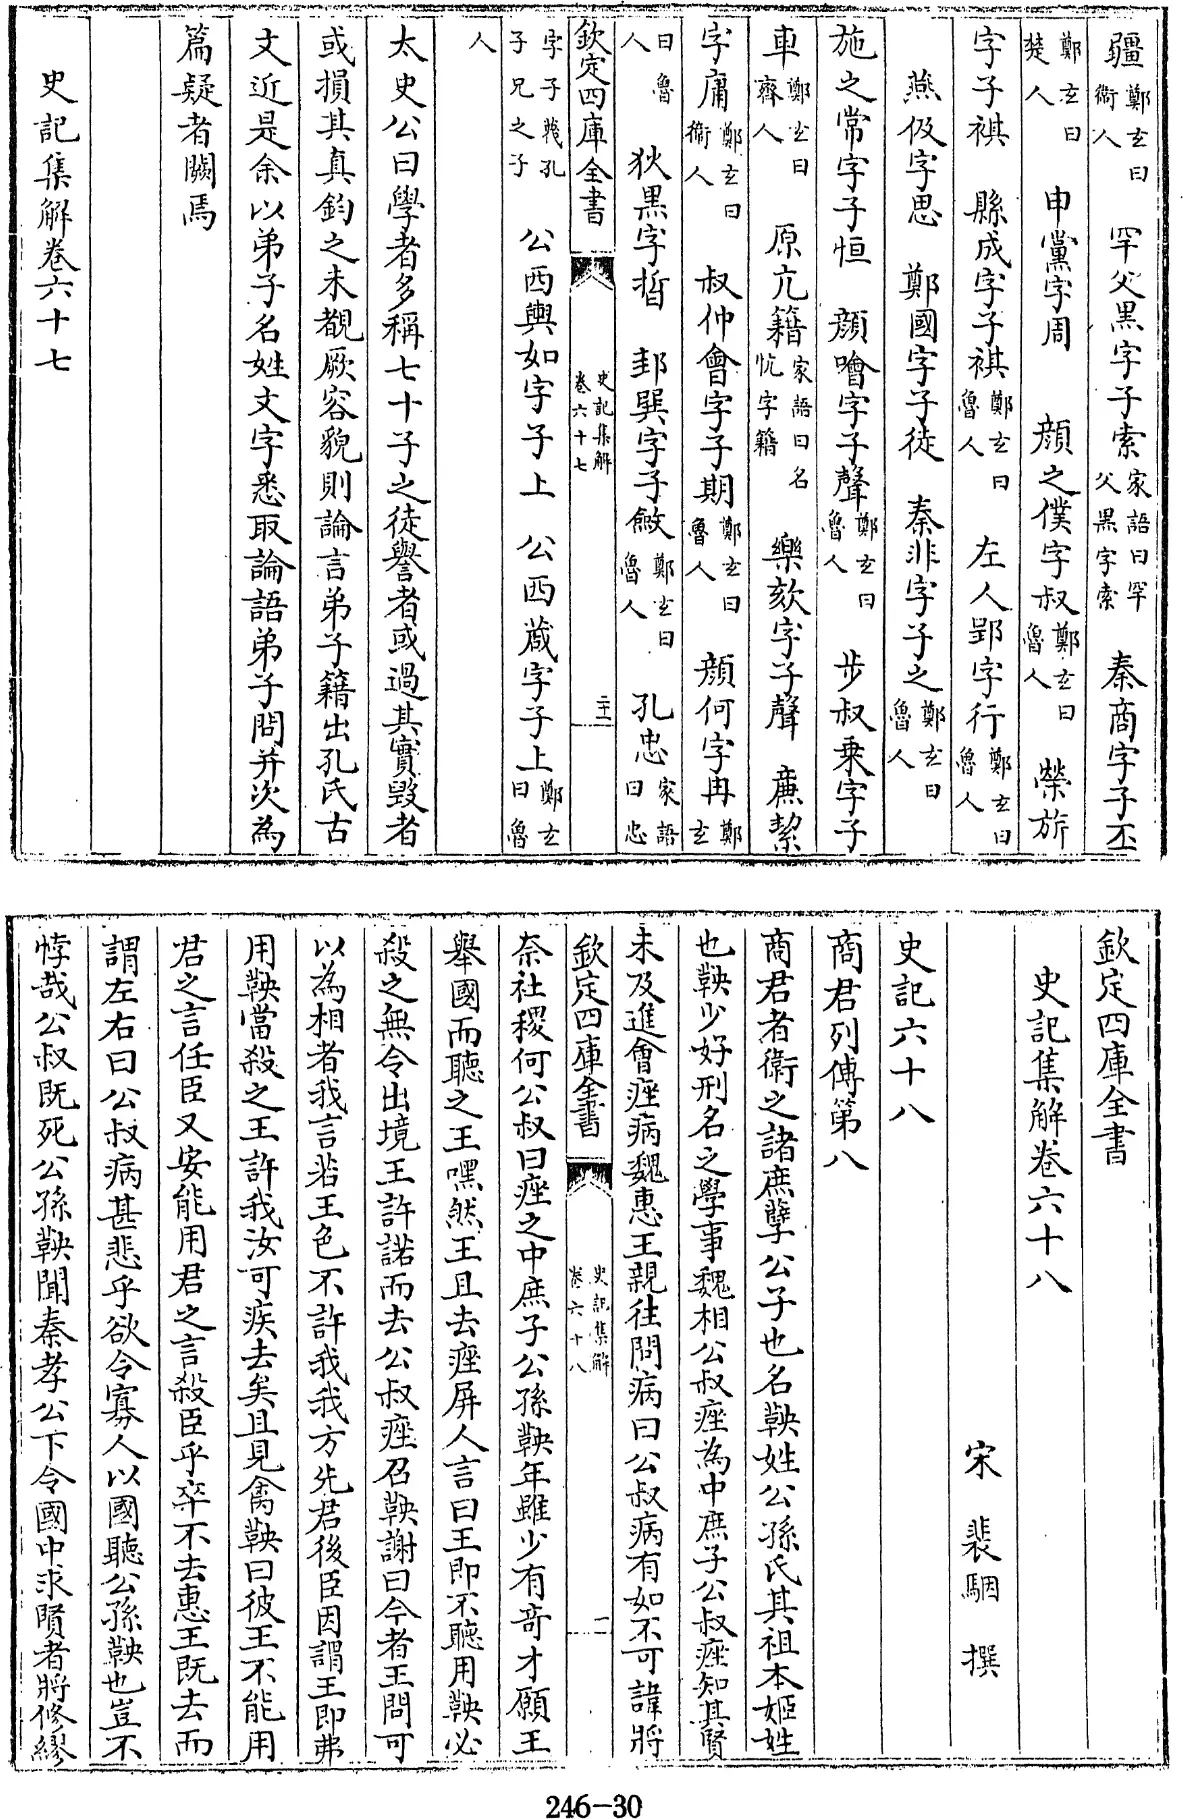 疆鄭玄曰衞人 罕父黑字子索家語曰罕父黒字索 秦商字子丕
鄭玄曰楚人 申黨字周 顔之僕字叔鄭玄曰魯人 榮旂
字子祺 縣成字子祺鄭玄曰魯人 左人郢字行鄭玄曰魯人
燕伋字思 鄭國字子徒 秦非字子之鄭玄曰魯人
施之常字子恒 顔噲字子聲鄭玄曰魯人 步叔乗字子
車鄭玄曰齊人 原亢籍家語曰名忼字籍 樂欬字子聲 亷絜
字庸鄭玄曰衞人 叔仲會字子期鄭玄曰魯人 顔何字冉鄭玄
曰魯人 狄黒字晳 邽巽字子斂鄭玄曰魯人 孔忠家語曰忠
欽定四庫全書 史記集解卷六十七 二十一
字子蔑孔子兄之子 公西輿如字子上 公西蒧字子上鄭玄曰魯
人
太史公曰學者多稱七十子之徒譽者或過其實毀者
或損其真鈞之未覩厥容貌則論言弟子籍出孔氏古
文近是余以弟子名姓文字悉取論語弟子問并次為
篇疑者闕焉
史記集解卷六十七
欽定四庫全書
史記集解卷六十八
宋 裴駰 撰
史記六十八
商君列傳第八
商君者衞之諸庶孽公子也名鞅姓公孫氏其祖本姬姓
也鞅少好刑名之學事魏相公叔痤為中庶子公叔痤知其賢
未及進會痤病魏惠王親往問病曰公叔病有如不可諱將
欽定四庫全書 史記集解卷六十八 一
奈社稷何公叔曰痤之中庶子公孫鞅年雖少有竒才願王
舉國而聽之王嘿然王且去痤屏人言曰王即不聽用鞅必
殺之無令出境王許諾而去公叔痤召鞅謝曰今者王問可
以為相者我言若王色不許我我方先君後臣因謂王即弗
用鞅當殺之王許我汝可疾去矣且見禽鞅曰彼王不能用
君之言任臣又安能用君之言殺臣乎卒不去惠王既去而
謂左右曰公叔病甚悲乎欲令寡人以國聽公孫鞅也豈不
悖哉公叔既死公孫鞅聞秦孝公下令國中求賢者將修繆
246-30